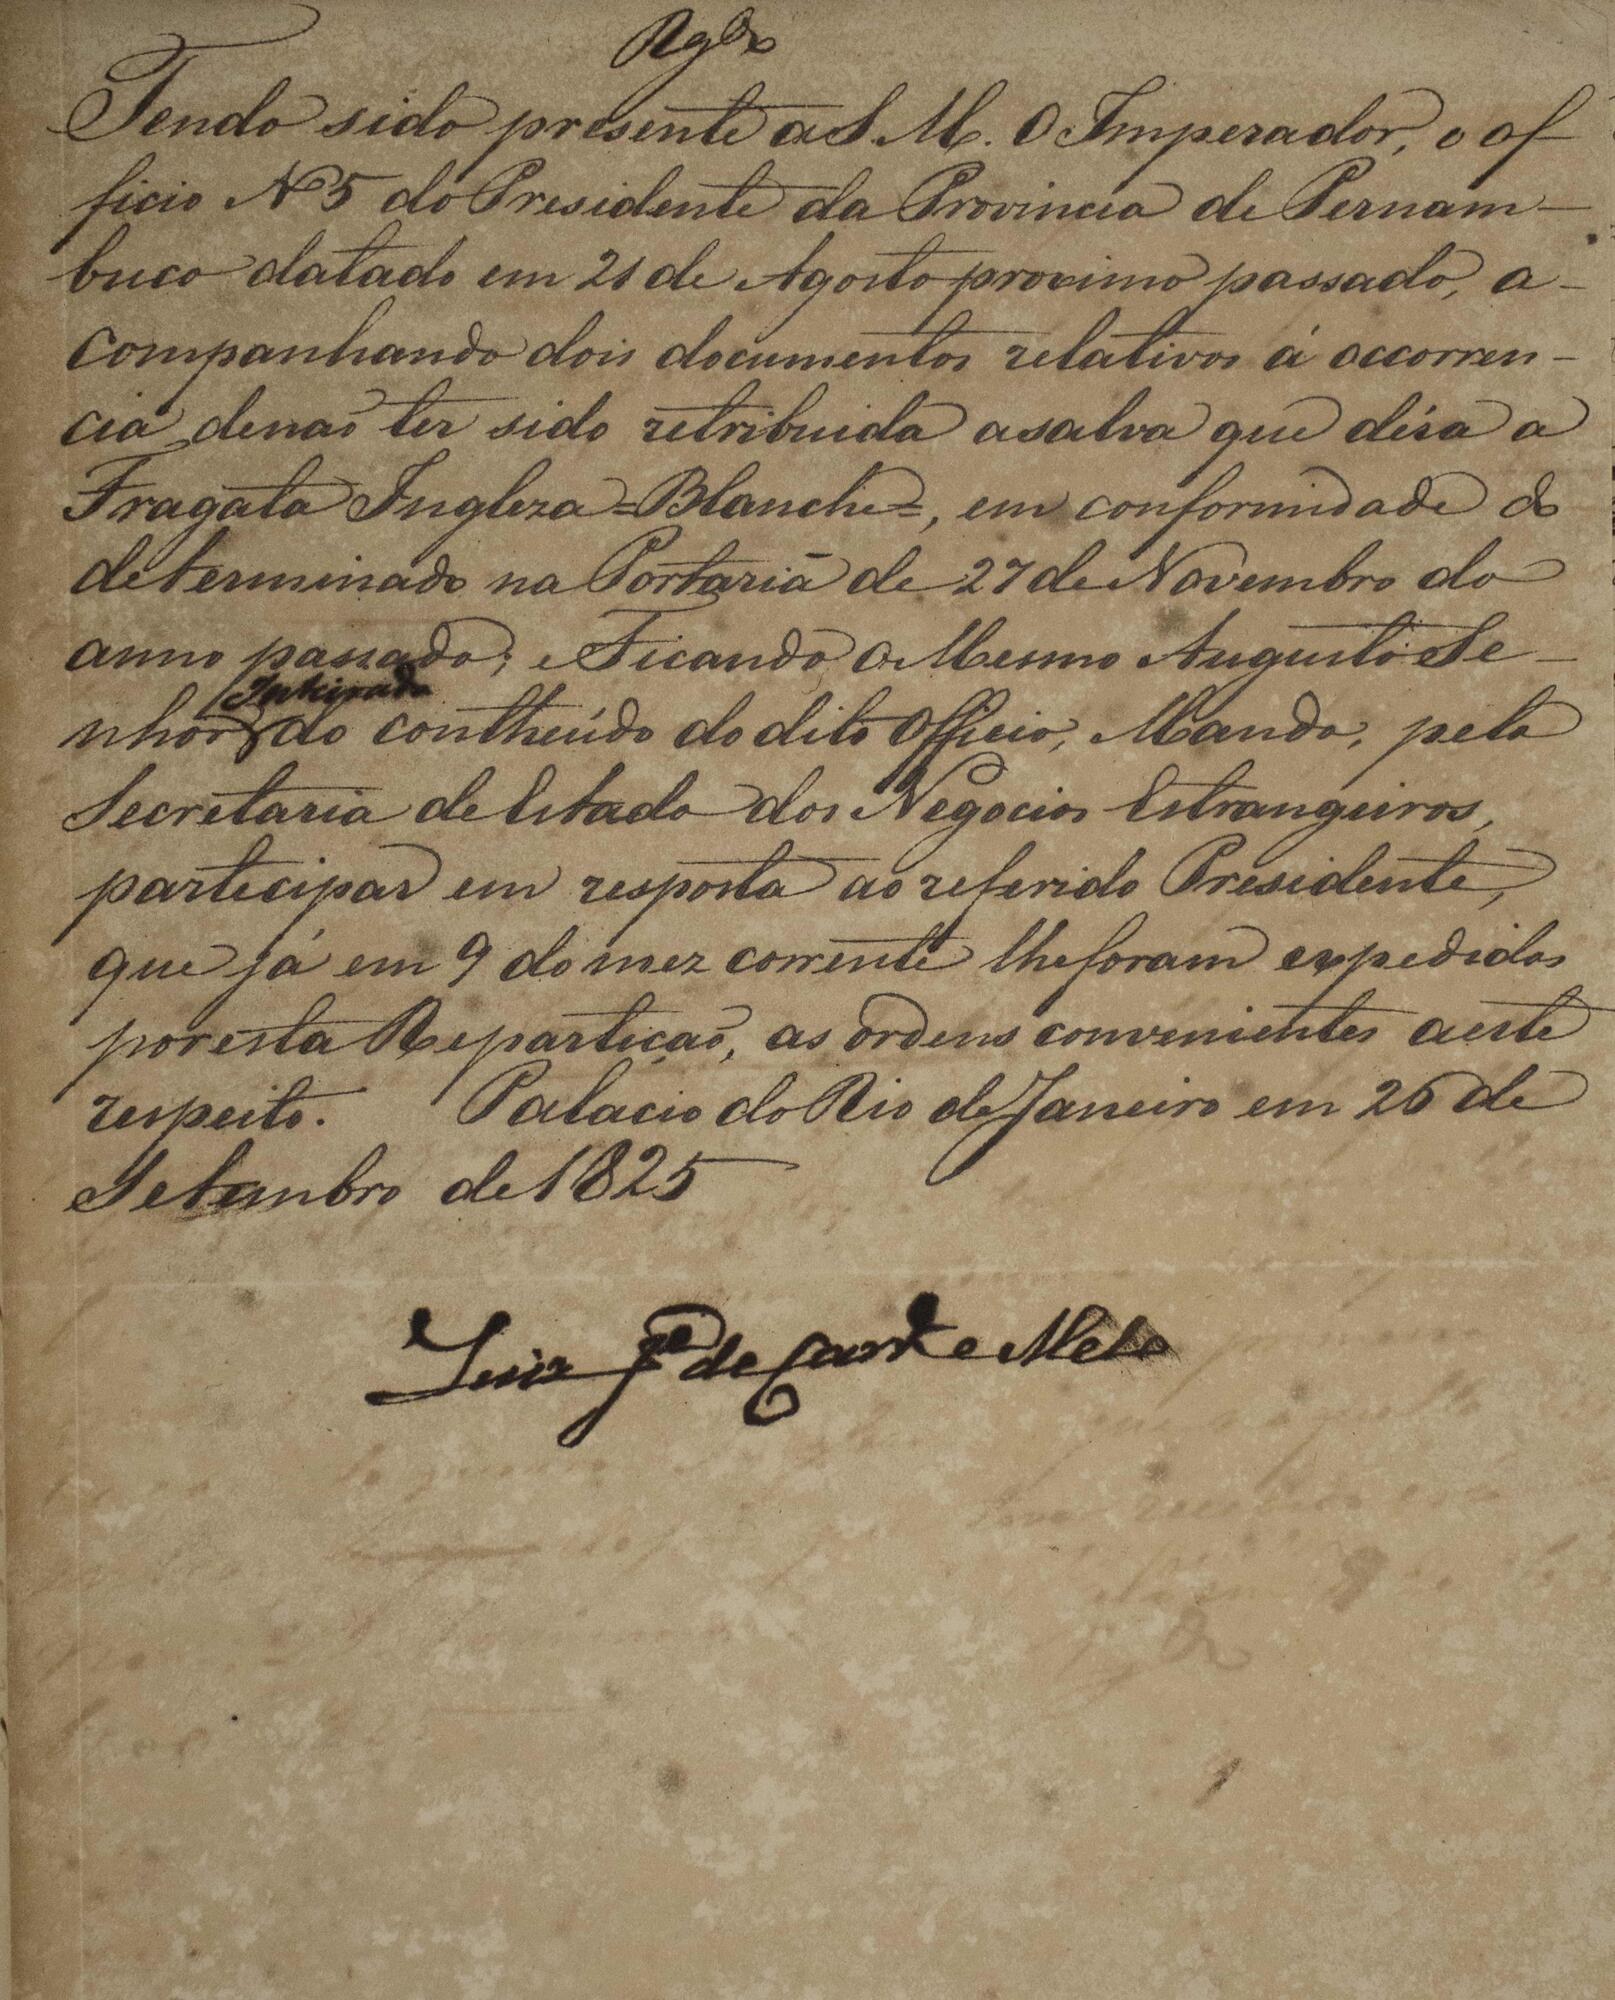 Rgdo
Tendo sido presente a S. M. O Imperador, o of
ficio Nº 5 do Presidente da Provincia de Pernam-
buco datado em 21 de Agosto proximo passado, a-
companhando dois documentos relativos á occorren-
cia de não ter sido retribuida a salva que déra a
Fragata Ingleza =Blanche=, em conformidade do
determinado na Portaria de 27 de Novembro do
anno passado; e Ficando O Mesmo Augusto Se-
Inteirado
nhor do contheúdo do dito Officio, Manda, pela
Secretaria de Estado dos Negocios Estrangeiros,
participar em resposta ao referido Presidente,
que já em 9 do mez corrente lhe foram expedidas
por esta Repartição, as ordens convenientes a este
respeito. Palacio do Rio de Janeiro em 26 de
Setembro de 1825
Luiz Je de Carvº e Mello